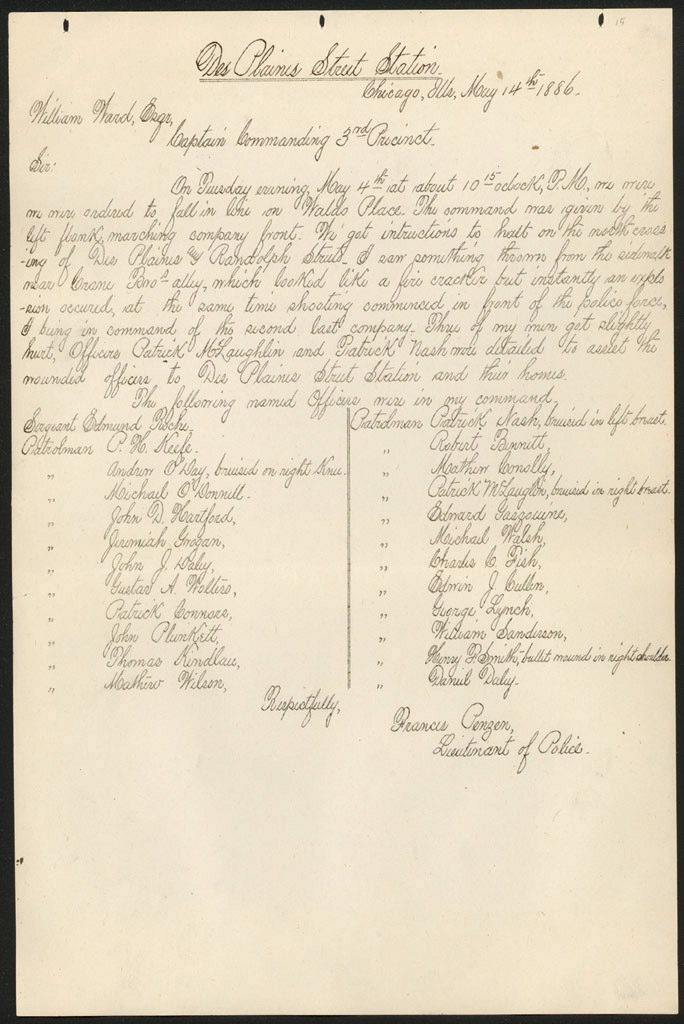 15
Des Plaines Street Station.
Chicago, Ills, May 14th 1886.
William Ward, Esqr,
Captain Commanding 3rd Precinct.
Sir:
On Tuesday evening, May 4th at about 10 15 oclock, P.M, we were
we were ordered to fall in line on Waldo Place. The command was given by the
left flank, marching company front. We get intructions to halt on the north cross
-ing of Des Plaines & Randolph Streets. I saw something thrown from the sidewalk
near Crane Bros alley, which looked like a fire cracker but instantly an explo
-sion occured, at the same time shooting commenced in front of the police force,
I being in command of the second last company. Three of my men get slightly
hurt, Officers Patrick McLaughlin and Patrick Nash were detailed to assist the
wounded officers to Des Plaines Street Station and their homes.
The following named Officers were in my command.
Sergeant Edmund Roche.
Patrolman P. H. Keefe.
„ Andrew O'Day, bruised on right Knee.
„ Michael O'Donnell.
„ John D. Hartford,
„ Jeremiah Grogan,
„ John J. Daley,
„ Gustav A. Walters,
„ Patrick Connors,
„ John Plunkett,
„ Thomas Kindlau,
„ Mathew Wilson,
Patrolman Patrick Nash, bruised in left breast.
„ Robert Bennett,
„ Mathew Conolly,
„ Patrick McLaughlin, bruised in right breast.
„ Edward Gasquine,
„ Michael Walsh,
„ Charles C. Fish,
„ Edwin J. Cullen,
„ George Lynch,
„ William Sanderson,
„ Henry F. Smith, bullet wound in right shoulder.
„ Daniel Daley.
Respectfully,
Francis Penzen,
Lieutenant of Police.